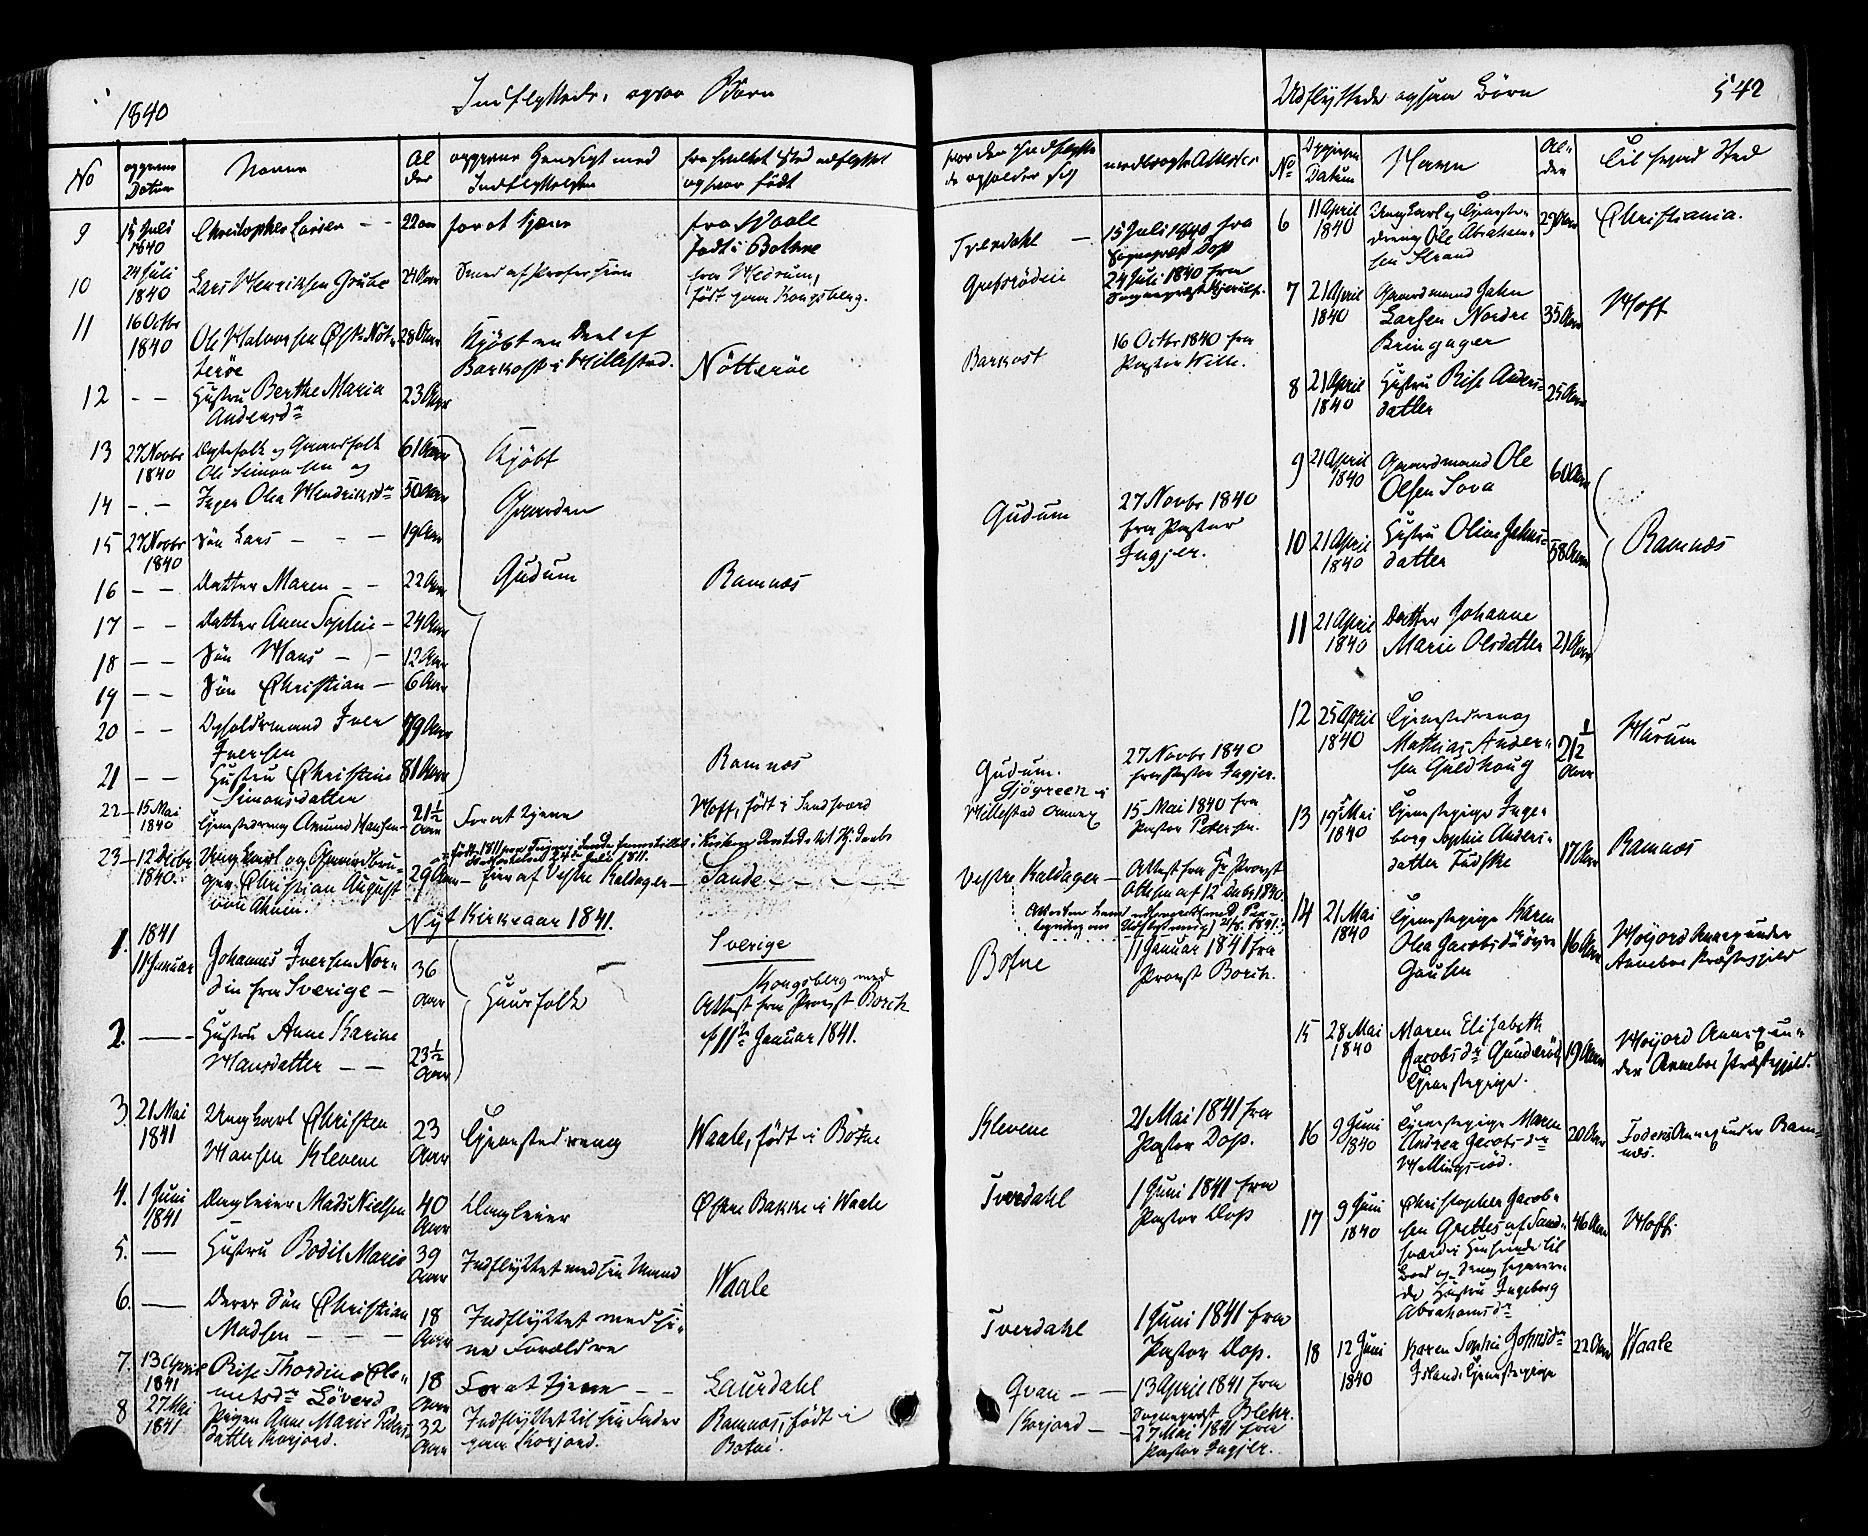 1840
Indflyttede, ogsaa Børn
No
opgivne Datum
Navne
Al
der
opgivne Hensigt med
Indflyttelsen
fra hvilket Sted udflyttet
og hvor født
hvor den Indflytte
de opholder sig
medbragte Attester
9 15 Juli 1840 Christopher Larsen – – 22 aar for at tjene fra Waale
født i Botne
Tverdahl – 15 Juli 1840 fra
Sognepræst Dop
10 24 Juli 1840 Lars Henriksen Grube 24 Aar Smed af Profession fra Hedrum,
født paa Kongsberg.
Grebsrødeie 24 Juli 1840 fra
Sognepræst Kjerulf.
11 16 Octbr 1840 Ole Halvorsen Øste Nøt-
terøe 28 Aar Kjøbt en Deel af
Barkost i Hillestad. Nøtterøe
Barkost 16 Octbr 1840 fra
Pastor Wille.
12 – – Hustru Berthe Maria
Andersdr 23 Aar
13 27 Novbr 1840 Gaardfolk
Ole Simonsen og 61 Aar Kjøbt
14 – – Inger Olea Hendriksdr 50 Aar Gaarden
Gudum 27 Novbr 1840
fra Pastor
Ingjer.
15 27 Novbr 1840 Søn Lars – – – 19 Aar
16 – – Datter Maren – – 22 Aar Gudum Ramnæs
17 – – Datter Anne Sophie – 24 Aar
18 – – Søn Hans – – 12 Aar
19 – – Søn Christian – 6 Aar
20 – – Opholdsmand Iver
Iversen 79 Aar
21 – – Hustru Christine
Simonsdatter 81 Aar Ramnæs
Gudum. 27 Novbr 1840
fra Pastor Ingjer.
22 – 15 Mai 1840 Tjenestedreng Amund Hansen 21½ Aar For at tjene Hoff, født i Sandsværd
Sjøgreen i
Hillestad Annex 15 Mai 1840 fra
Pastor Petersen.
23 – 12 Decbr 1840. Ungkarl og Gaardbru-
ger Christian August
von Ahnen. 29 Aar – Eier af Vestre Kaldager – Sande
Vestre Kaldager – Attest fra Hr Provst
af 12 Decbr 1840.
Nyt Kirkeaar 1841.
1. 1841
11 Januar Johannes Iversen Nor-
din fra Sverige – 36
Aar Huusfolk Sverige
Kongsberg med
Attest fra Provst Borch
Botne 11 Januar 1841 fra
Provst Borch.
2. —— Hustru Anne Karine
Hansdatter – – 23½
Aar af 11te Januar 1841.
3. 21 Mai
1841 Ungkarl Christen
Hansen Klevene 23
Aar Tjenestedreng Waale, født i Botne
Klevene 21 Mai 1841 fra
Pastor Dop.
4. 1 Juni
1841 Dagleier Mads Nielsen 40
Aar Dagleier Østre Bakke i Waale
Tverdahl 1 Juni 1841 fra
Pastor Dop
5. — Hustru Bodil Marie 39
Aar Indflyttet med sin Mand
Waale
6. — Deres Søn Christian
Madsen – – – 18
Aar Indflyttet med si-
ne Forældre
Tverdahl 1 Juni 1841 fra
Pastor Dop.
7. 13 April
1841 Rise Thordine Cle-
metsdr Løverd 18
Aar For at tjene – – Laurdahl
Qvan – – 13 April 1841 fra
Sognepræst Blehr.
8 27 Mai
1841 Pigen Anne Marie Peders-
datter Korjord. 32
Aar Indflyttet til sin Fader
paa Korjord. Ramnæs, født i
Botne.
Korjord – – 27 Mai 1841 fra
Pastor Ingjer.
Udflyttede ogsaa Børn
542
No
Opgiven
Datum
Navn
Al-
der
Til hvad Sted
6 11 April
1840 Ungkarl og Tjeneste-
dreng Ole Abraham-
sen Strand 29 Aar Christiania.
7 21 April
1840 Gaardmand John
Larsen Nordre
Bringager 35 Aar Hoff
8 21 April
1840 Hustru Rise Anders-
datter 25 Aar
9 21 April
1840 Gaardmand Ole
Olsen Sova 60 Aar
10 21 April
1840 Hustru Oline Johns-
datter 58 Aar Ramnæs
11 21 April
1840 Datter Johanne
Marie Olsdatter 21 Aar
12 25 April
1840 Tjenestedreng
Mathias Ander-
sen Guldhoug 21½
Aar Hurum
13 19 Mai
1840 Tjenestepige Inge-
borg Sophie Anders-
datter 17 Aar Ramnæs
14 21 Mai
1840 Tjenestepige Karen
Olea Jacobsdr 16 Aar Høijord Annex under
Arneboe Præstegjeld
15 28 Mai
1840 Maren Elisabeth
Jacobsdr Gunderød
Tjenestepige. 19 Aar Høijord Annex un-
der Arnebo Præstegjeld.
16 9 Juni
1840 Tjenestepige Maren
Andrea Jacobsdr
Hellingsrød. 20 Aar Annex under Ram-
næs.
17 9 Juni
1840 Christopher Jacob-
sen Grettes af Sand-
sværd til
Bord og Seng separere-
de Hustru Ingeborg
Abrahamsdr 46 Aar Hoff.
18 12 Juni
1840 Karen Sophie Johnsdr
Island Tjenestepige 22 Aar Waale